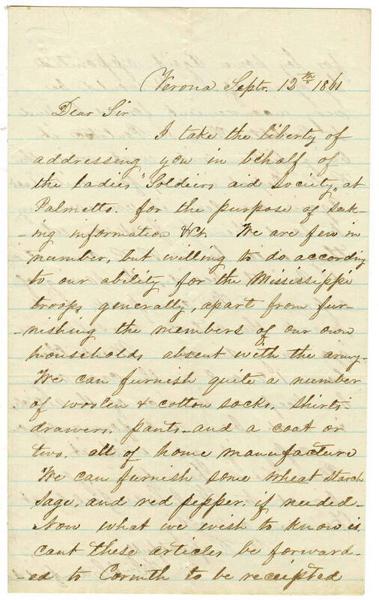 Verona Septr. 12th 1861
Dear Sir
I take the liberty of
addressing you in behalf of
the ladies "Soldiers aid society, at
Palmetto. for the purpose of seek-
-ing information &c. We are few in
number, but willing to do according
to our ability for the Mississippi
troops generally, apart from fur-
-nishing the members of our own
households, absent with the army-
We can furnish quite a number
of woolen & cotton socks, shirts
drawers, pants and a coat or
two. all of home manufacture
We can furnish some wheat starch
sage, and red pepper, if needed-
Now what we wish to know is
cant these articles be forward-
ed to Corinth to be receipted